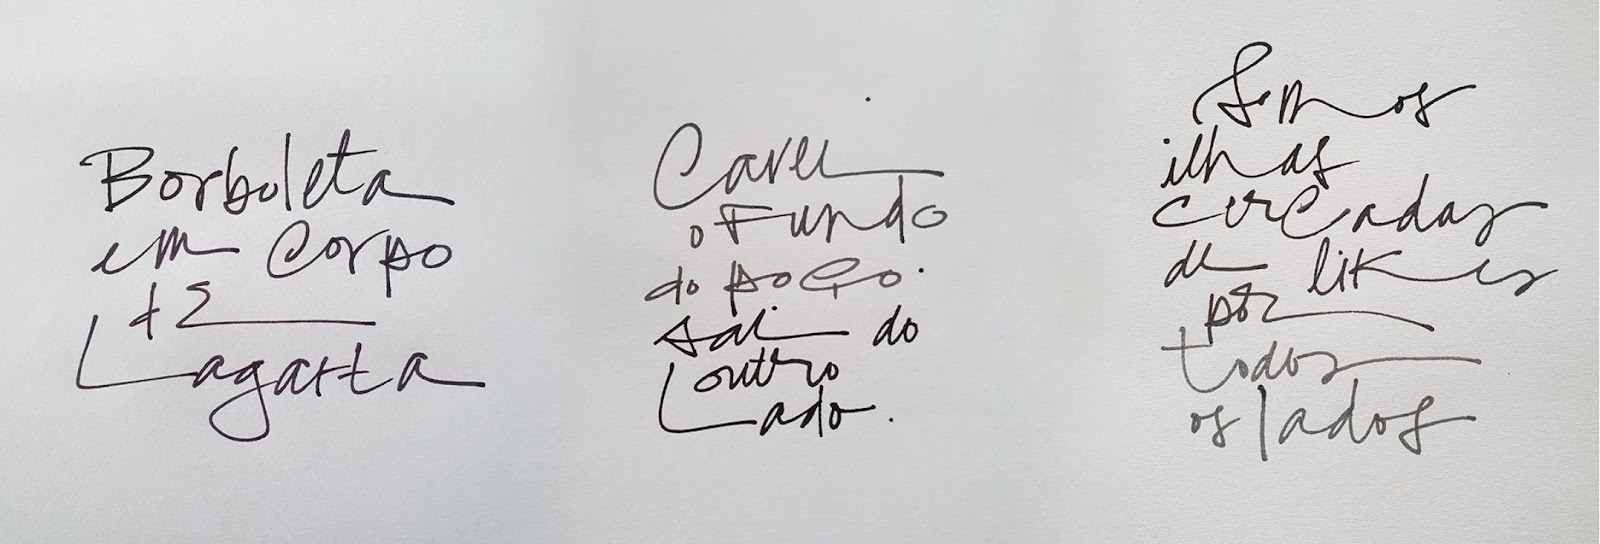 Borboleta
em corpo
Lagarta
Cavei
o Fundo
do poço.
sai do
outro
Lado.
Somos
ilhas
cercadas
de likes
por
todos
os lados